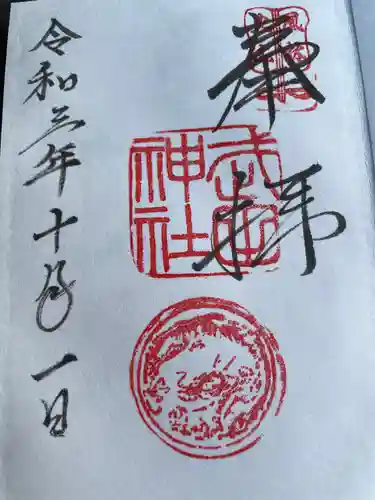 奉拝
武雄神社
令和三年十月一日